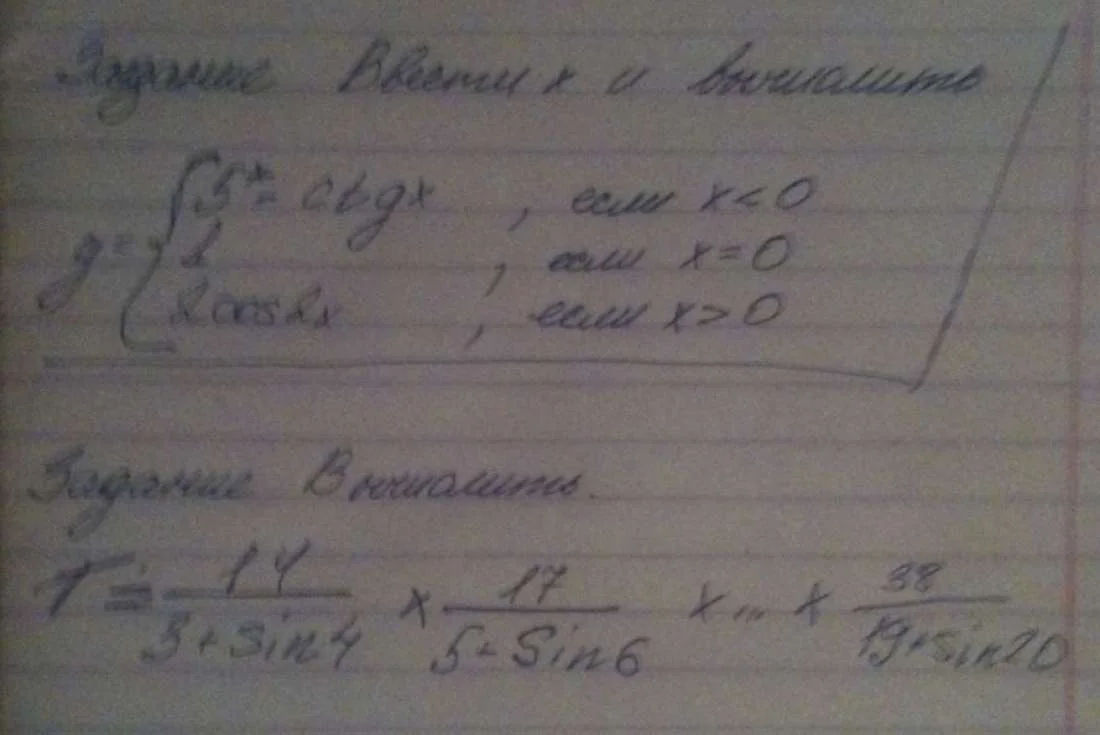 Задание Ввести x и вычислить
y = { 5^x - ctgx , если x < 0
2 , если x = 0
2cos2x , если x > 0
Задание Вычислить.
T = 14/(3+sin4) × 17/(5-Sin6) × ... × 38/(19+sin20)